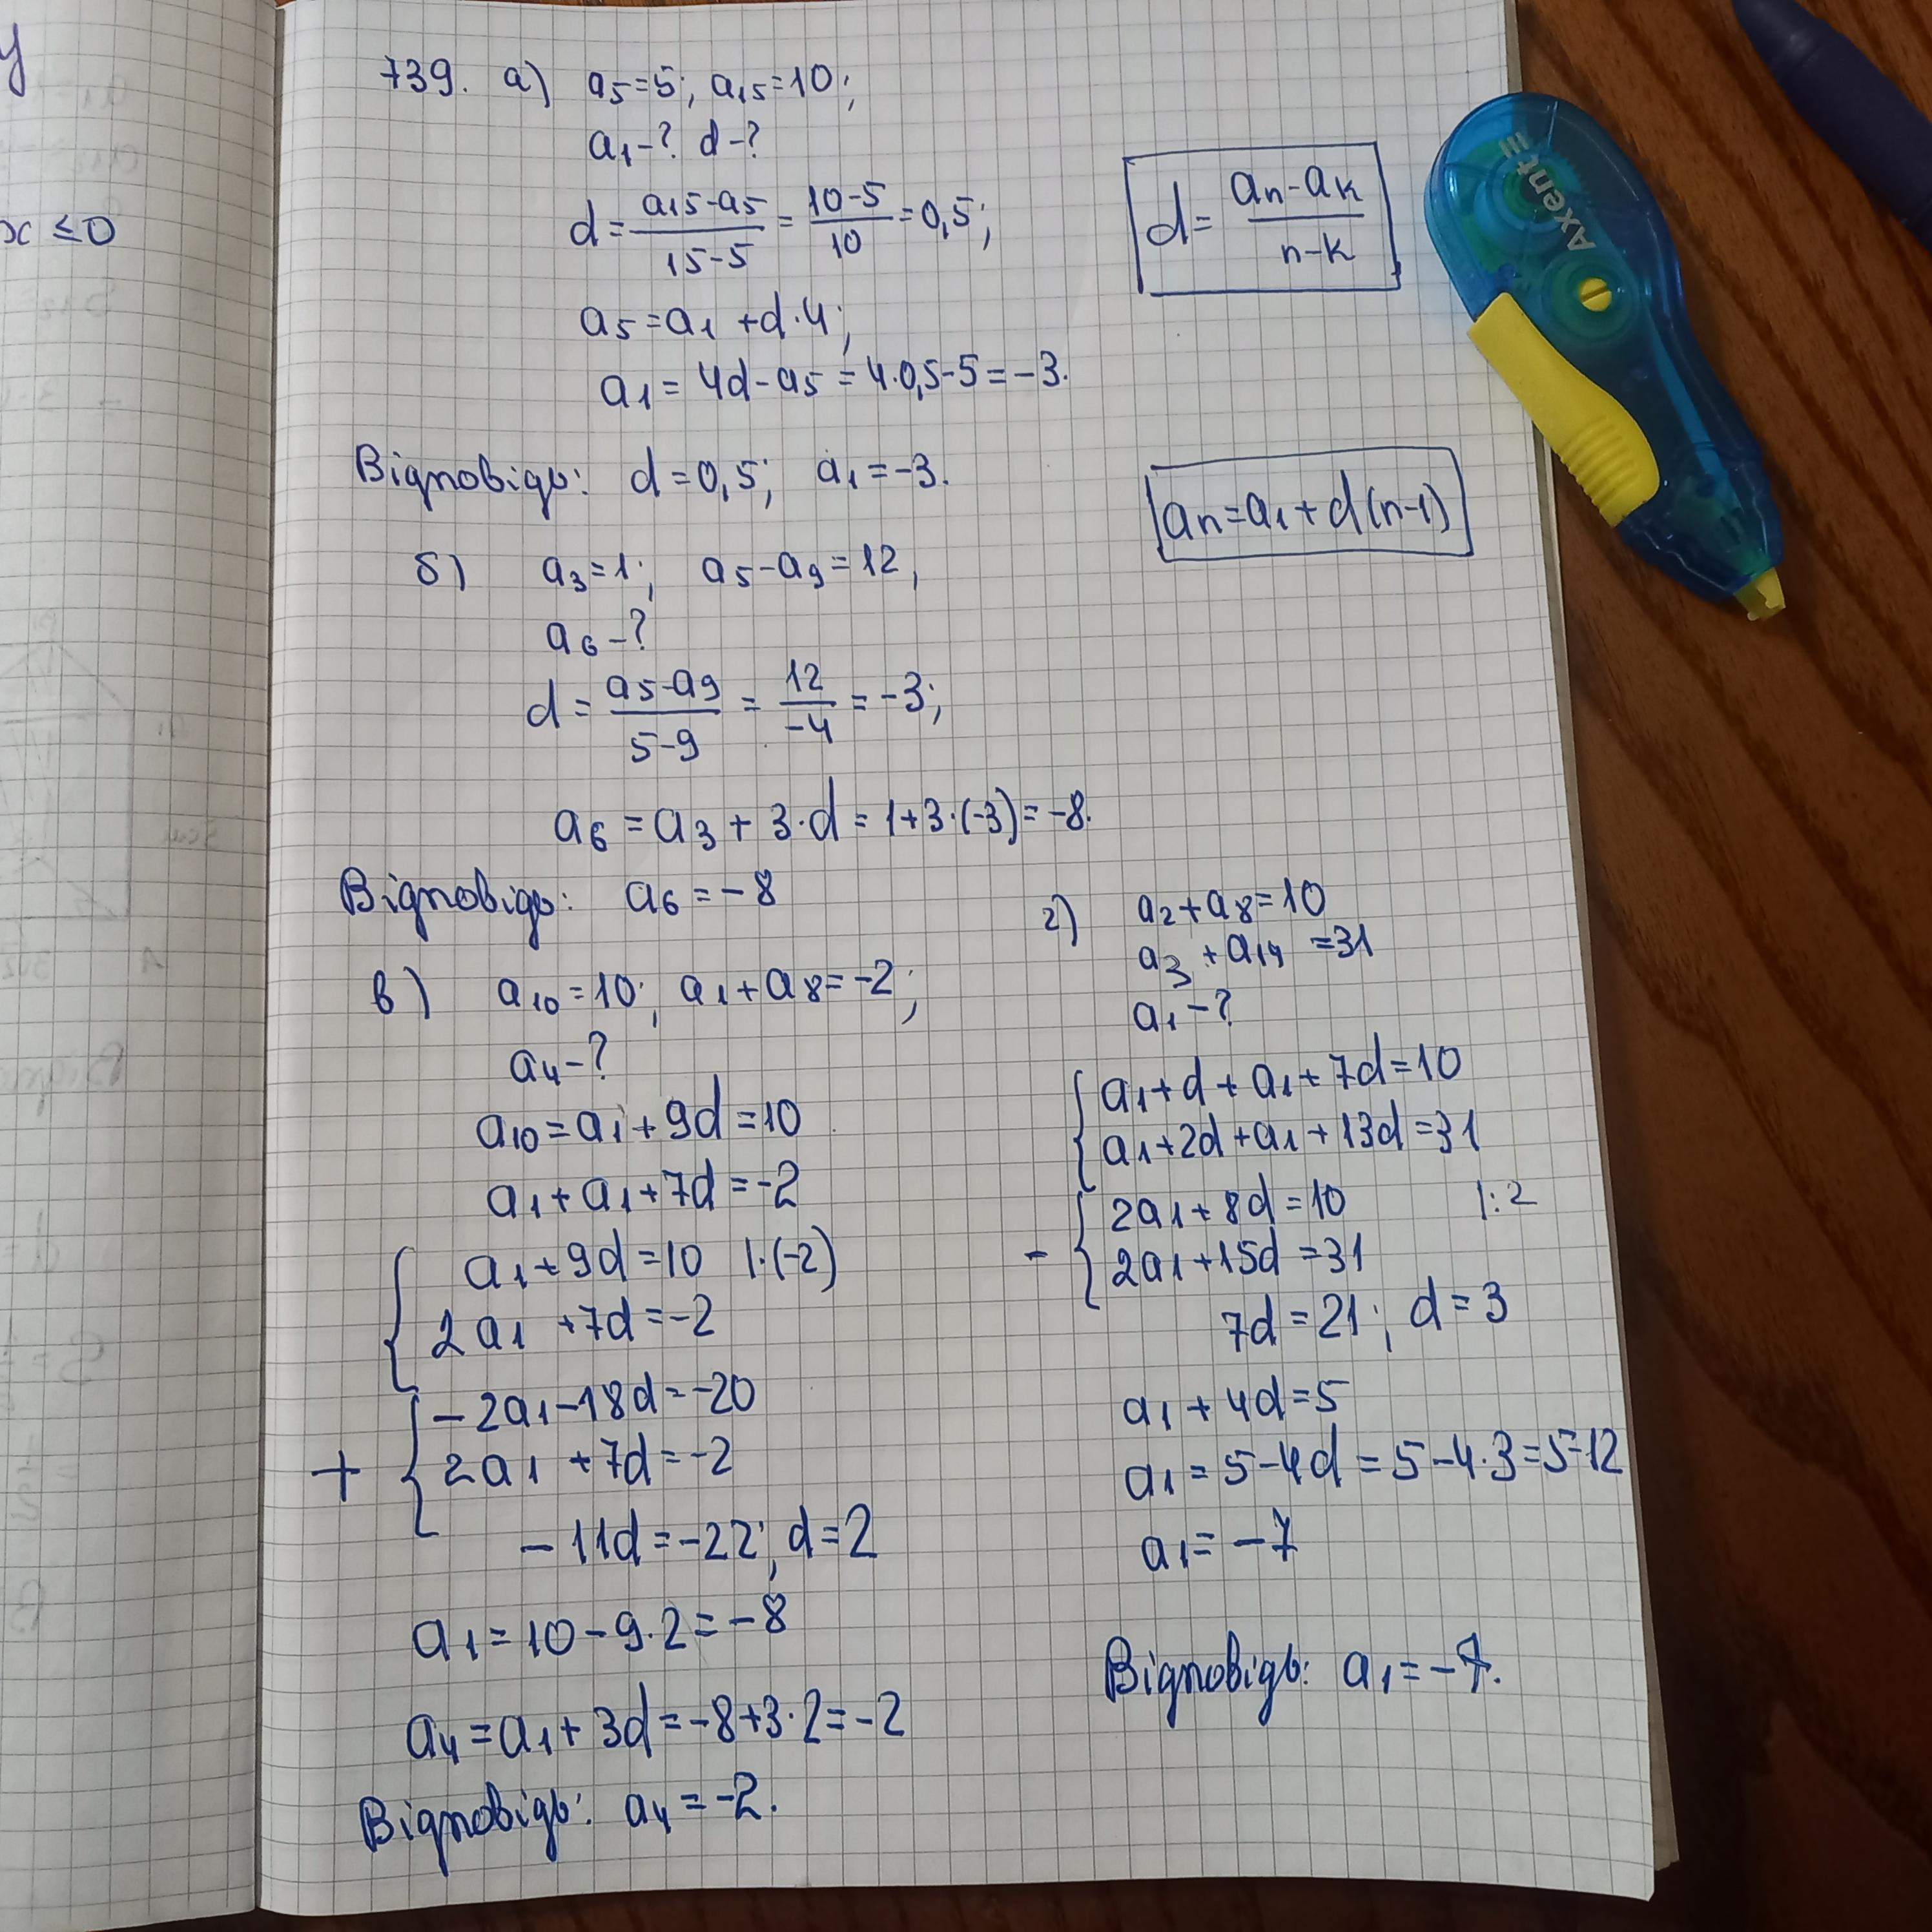 у
x ≤ 0
739. а) a₅=5; a₁₅=10;
a₁-? d-?
d = (a₁₅-a₅)/(15-5) = (10-5)/10 = 0,5;
d = (aₙ-aₖ)/(n-k)
a₅=a₁ +d·4;
a₁ = 4d-a₅ = 4·0,5-5 = -3.
Відповідь: d=0,5; a₁=-3.
aₙ=a₁+d(n-1)
б) a₃=1; a₅-a₉=12,
a₆-?
d = (a₅-a₉)/(5-9) = 12/-4 = -3;
a₆ = a₃ + 3·d = 1+3·(-3) = -8.
Відповідь: a₆ = -8
в) a₁₀=10; a₁+a₈=-2;
a₄-?
a₁₀=a₁+9d=10
a₁+a₁+7d=-2
{ a₁+9d=10 |·(-2)
2a₁ +7d=-2
+ { -2a₁-18d=-20
2a₁ +7d=-2
-11d=-22; d=2
a₁=10-9·2=-8
a₄=a₁+3d=-8+3·2=-2
Відповідь: a₄=-2.
г) a₂+a₈=10
a₃ +a₁₄ =31
a₁-?
{ a₁+d+a₁+7d=10
a₁+2d+a₁+13d=31
- { 2a₁+8d=10 |:2
2a₁+15d=31
7d=21; d=3
a₁+4d=5
a₁=5-4d=5-4·3=5-12
a₁=-7
Відповідь: a₁=-7.
Axent